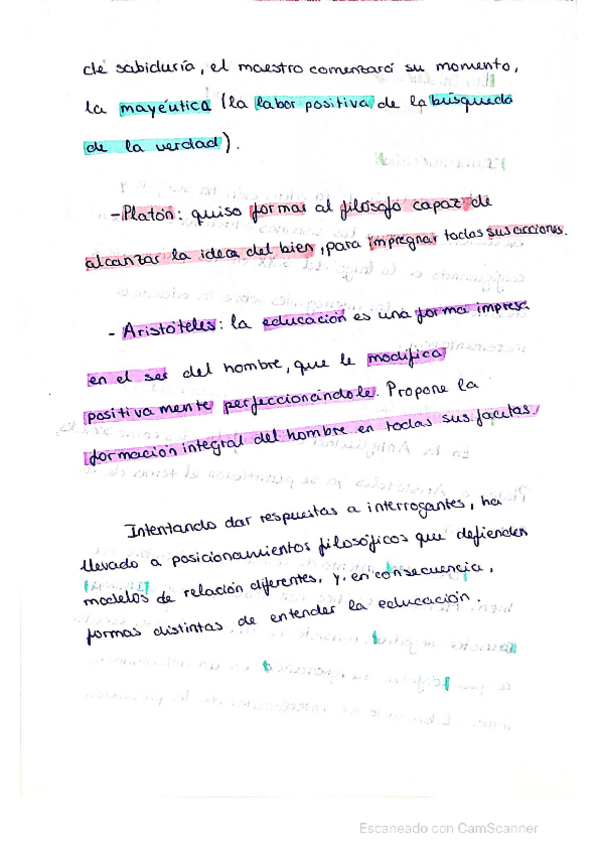 de sabiduría, el maestro comenzará su momento,
la mayéutica (la labor positiva de la búsqueda
de la verdad).
-Platón: quiso formar al filósofo capaz de
alcanzar la idea del bien, para impregnar todas sus acciones.
- Aristóteles: la educación es una forma impresa
en el ser del hombre, que le modifica
positivamente perfeccionándole. Propone la
formación integral del hombre en todas sus facetas.
Intentando dar respuestas a interrogantes, ha
llevado a posicionamientos filosóficos que defienden
modelos de relación diferentes, y, en consecuencia,
formas distintas de entender la educación.
Escaneado con CamScanner